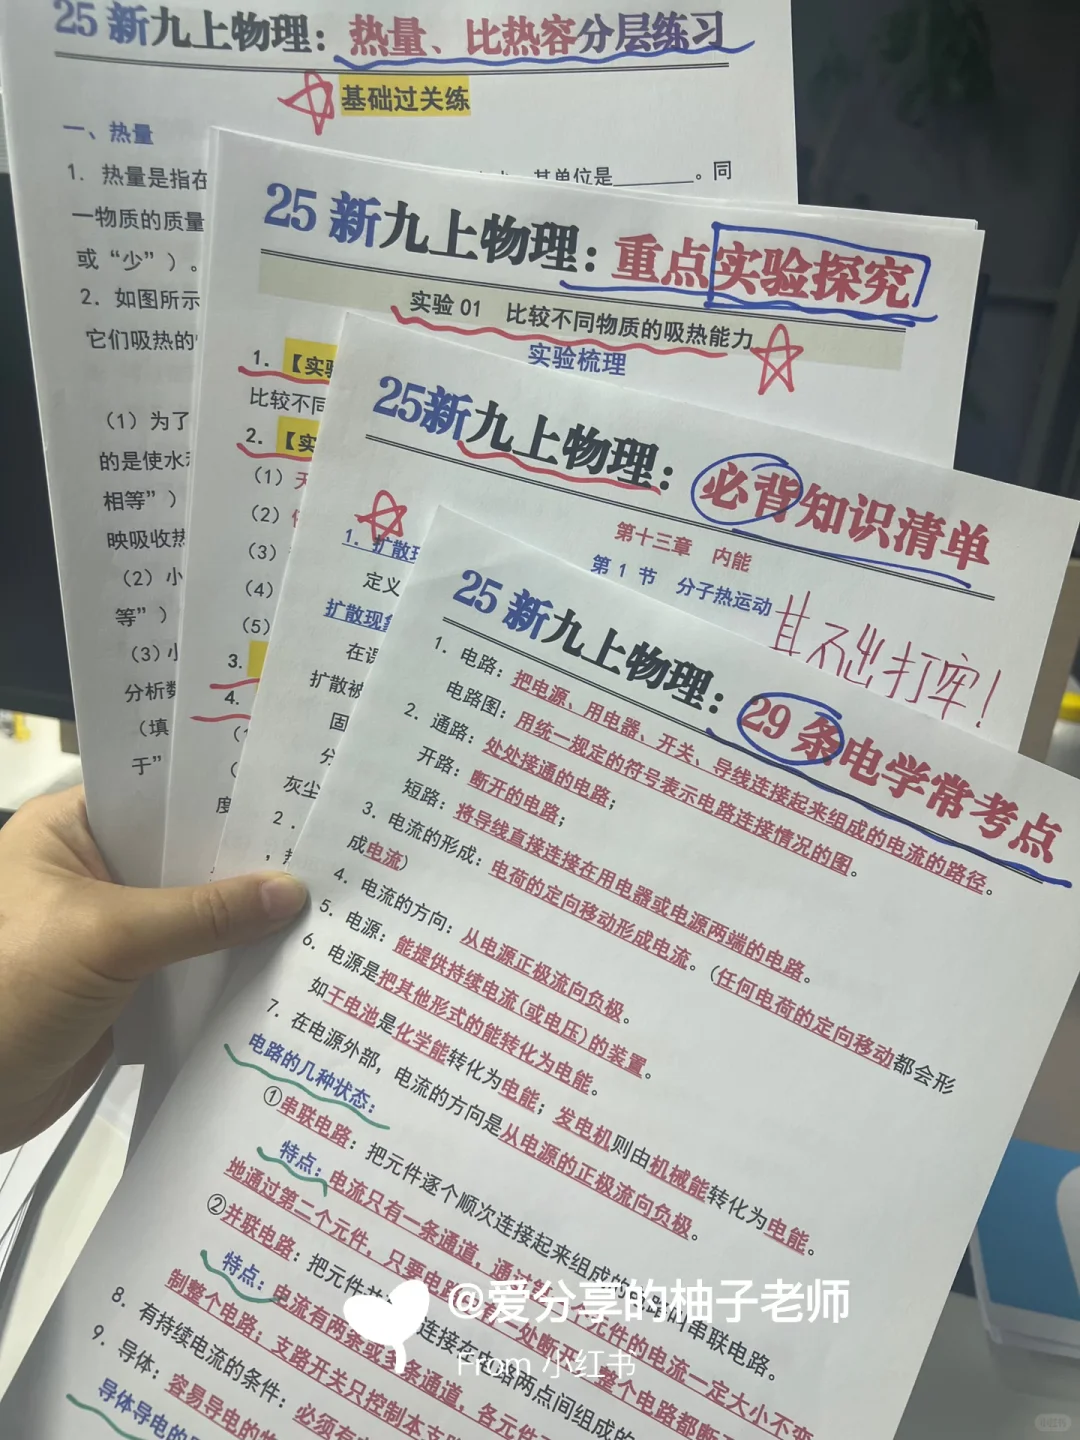 25新九上物理：热量、比热容分层练习
基础过关练
一、热量
1. 热量是指在
其单位是________。同
一物质的质量
或“少”）。
2. 如图所示
它们吸热的
（1）为了
的是使水和
相等”）
映吸收热
（2）小
等”）
（3）小
分析数
（填
于”
25新九上物理：重点实验探究
实验01 比较不同物质的吸热能力
实验梳理
1. 【实验
比较不同
2. 【实
（1）天
（2）
（3）
（4）
（5）
3.
4.
25新九上物理：必背知识清单
第十三章 内能
第1节 分子热运动
基础打牢！
1. 扩散现
定义
扩散现象
在课
扩散被
固
分
灰尘
2.
25新九上物理：29条电学常考点
1. 电路：把电源、用电器、开关、导线连接起来组成的电流的路径。
电路图：用统一规定的符号表示电路连接情况的图。
2. 通路：处处接通的电路；
开路：断开的电路；
短路：将导线直接连接在用电器或电源两端的电路。
3. 电流的形成：电荷的定向移动形成电流。（任何电荷的定向移动都会形
成电流）
4. 电流的方向：从电源正极流向负极。
5. 电源：能提供持续电流(或电压)的装置。
6. 电源是把其他形式的能转化为电能。
如干电池是化学能转化为电能；发电机则由机械能转化为电能。
7. 在电源外部，电流的方向是从电源的正极流向负极。
电路的几种状态：
①串联电路：把元件逐个顺次连接起来组成的电路叫串联电路。
特点：电流只有一条通道，通过第一个元件的电流一定大小不变
地通过第二个元件，只要电路中某一处断开，整个电路都断
②并联电路：把元件并列地连接在电路两点间组成的
特点：电流有两条或多条通道，各元件
制整个电路；支路开关只控制本支路
8. 有持续电流的条件：必须有
9. 导体：容易导电的物
导体导电的
@爱分享的柚子老师
From 小红书